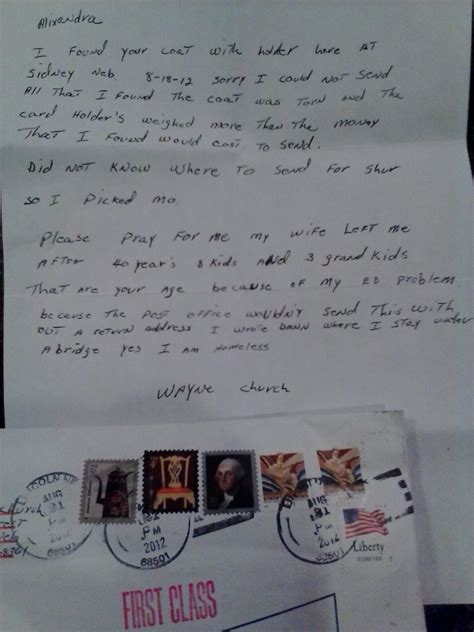 Alixandra
I Found your coat with holder here AT
Sidney Neb. 8-18-12 sorry I could NOT Send
All That I Found The coat was Torn and The
card Holder's weighed more Then The money
That I Found would cost To Send.
Did NOT Know Where To Send For Shur
so I Picked Mo.
Please Pray For me my wife Left me
After 40 year's 8 Kids AND 3 grand Kids
That are your Age because of my ED Problem.
because The Post office wouldn't Send This With
OUT A return Address I wrote Down where I stay under
A bridge yes I am Homeless
WAYNE Church
LINCOLN NE
AUG
31
PM
2012
68501
AUG
PM
2012
68501
Liberty
FOREVER
FIRST CLASS